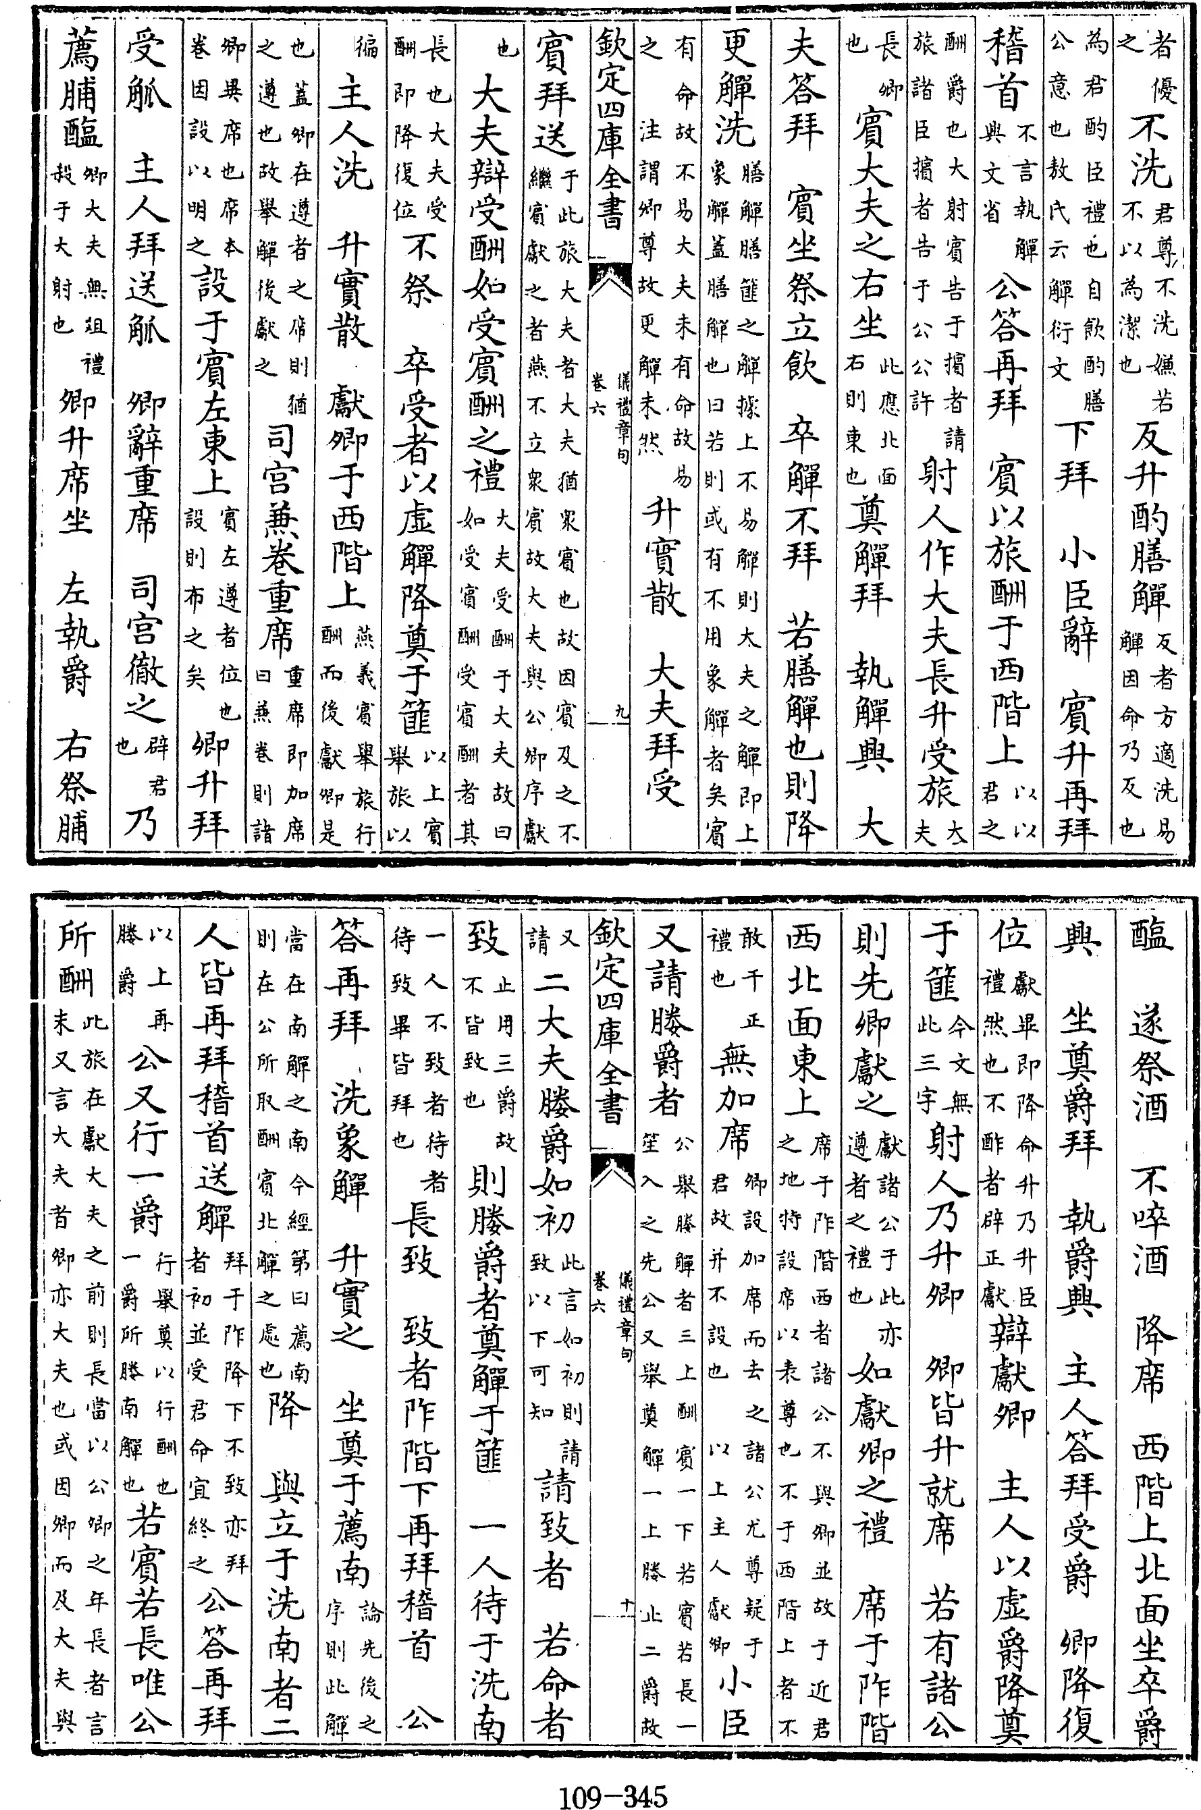 者優之不洗君尊不洗嫌若不以為潔也反升酌膳觶反者方適洗易觶因命乃反也
為君酌臣禮也自飲酌膳公意也敖氏云觶衍文下拜 小臣辭 賓升再拜
稽首不言執觶興文省公答再拜 賓以旅酬于西階上以以君之
酬爵也大射賓告于擯者請旅諸臣擯者告于公公許射人作大夫長升受旅大夫
長卿也賓大夫之右坐此應北面右則東也奠觶拜 執觶興 大
夫答拜 賓坐祭立飲 卒觶不拜 若膳觶也則降
更觶洗膳觶膳篚之觶據上不易觶則大夫之觶即上象觶蓋膳觶也曰若則或有不用象觶者矣賓
有命故不易大夫未有命故易之 注謂卿尊故更觶未然升實散 大夫拜受
欽定四庫全書 儀禮章句 卷六 九
賓拜送于此旅大夫者大夫猶衆賓也故因賓及之不繼賓獻之者燕不立衆賓故大夫與公卿序獻
也大夫辯受酬如受賓酬之禮大夫受酬于大夫故曰如受賓酬受賓酬者其
長也大夫受酬即降復位不祭 卒受者以虛觶降奠于篚以上賓舉旅以
徧主人洗 升實散 獻卿于西階上燕義賓舉旅行酬而後獻卿是
也蓋卿在遵者之席則猶之遵也故舉觶後獻之司宮兼卷重席重席即加席曰兼卷則諸
卿異席也席本卷因設以明之設于賓左東上賓左遵者位也設則布之矣卿升拜
受觚 主人拜送觚 卿辭重席 司宮徹之辟君也乃
薦脯醢卿大夫無俎禮殺于大射也卿升席坐 左執爵 右祭脯
醢 遂祭酒 不啐酒 降席 西階上北面坐卒爵
興 坐奠爵拜 執爵興 主人答拜受爵 卿降復
位獻畢即降命升乃升臣禮然也不酢者辟正獻辯獻卿 主人以虛爵降奠
于篚今文無此三字射人乃升卿 卿皆升就席 若有諸公
則先卿獻之獻諸公于此亦遵者之禮也如獻卿之禮 席于阼階
西北面東上席于阼階西者諸公不與卿並故于近君之地特設席以表尊也不于西階上者不
敢干正禮也無加席卿設加席而去之諸公尤尊疑于君故并不設也 以上主人獻卿小臣
又請媵爵者公舉媵觶者三上酬賓一下若賓若長一笙入之先公又舉奠觶一上媵止二爵故
欽定四庫全書 儀禮章句 卷六 十
又請二大夫媵爵如初此言如初則請致以下可知請致者 若命者
致止用三爵故不皆致也則媵爵者奠觶于篚 一人待于洗南
一人不致者待者待致畢皆拜也長致 致者阼階下再拜稽首 公
答再拜 洗象觶 升實之 坐奠于薦南論先後之序則此觶
當在南觶之南今經第曰薦南則在公所取酬賓北觶之處也降 與立于洗南者二
人皆再拜稽首送觶拜于阼降下不致亦拜者初並受君命宜終之公答再拜
以上再媵爵公又行一爵行舉奠以行酬也一爵所媵南觶也若賓若長唯公
所酬此旅在獻大夫之前則長當以公卿之年長者言未又言大夫者卿亦大夫也或因卿而及大夫與
109-345